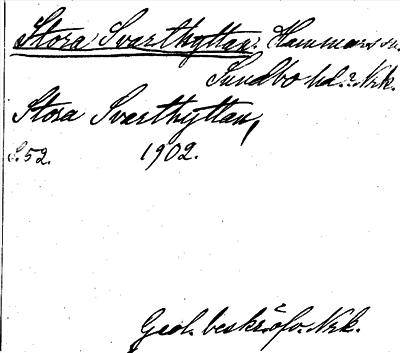 Stora Svarthyttan. Hammars sn.
Sundbo hd. Nrk.
Stora Svarthyttan,
S. 52. 1902.
Geol. beskr. öfv. Nrk.